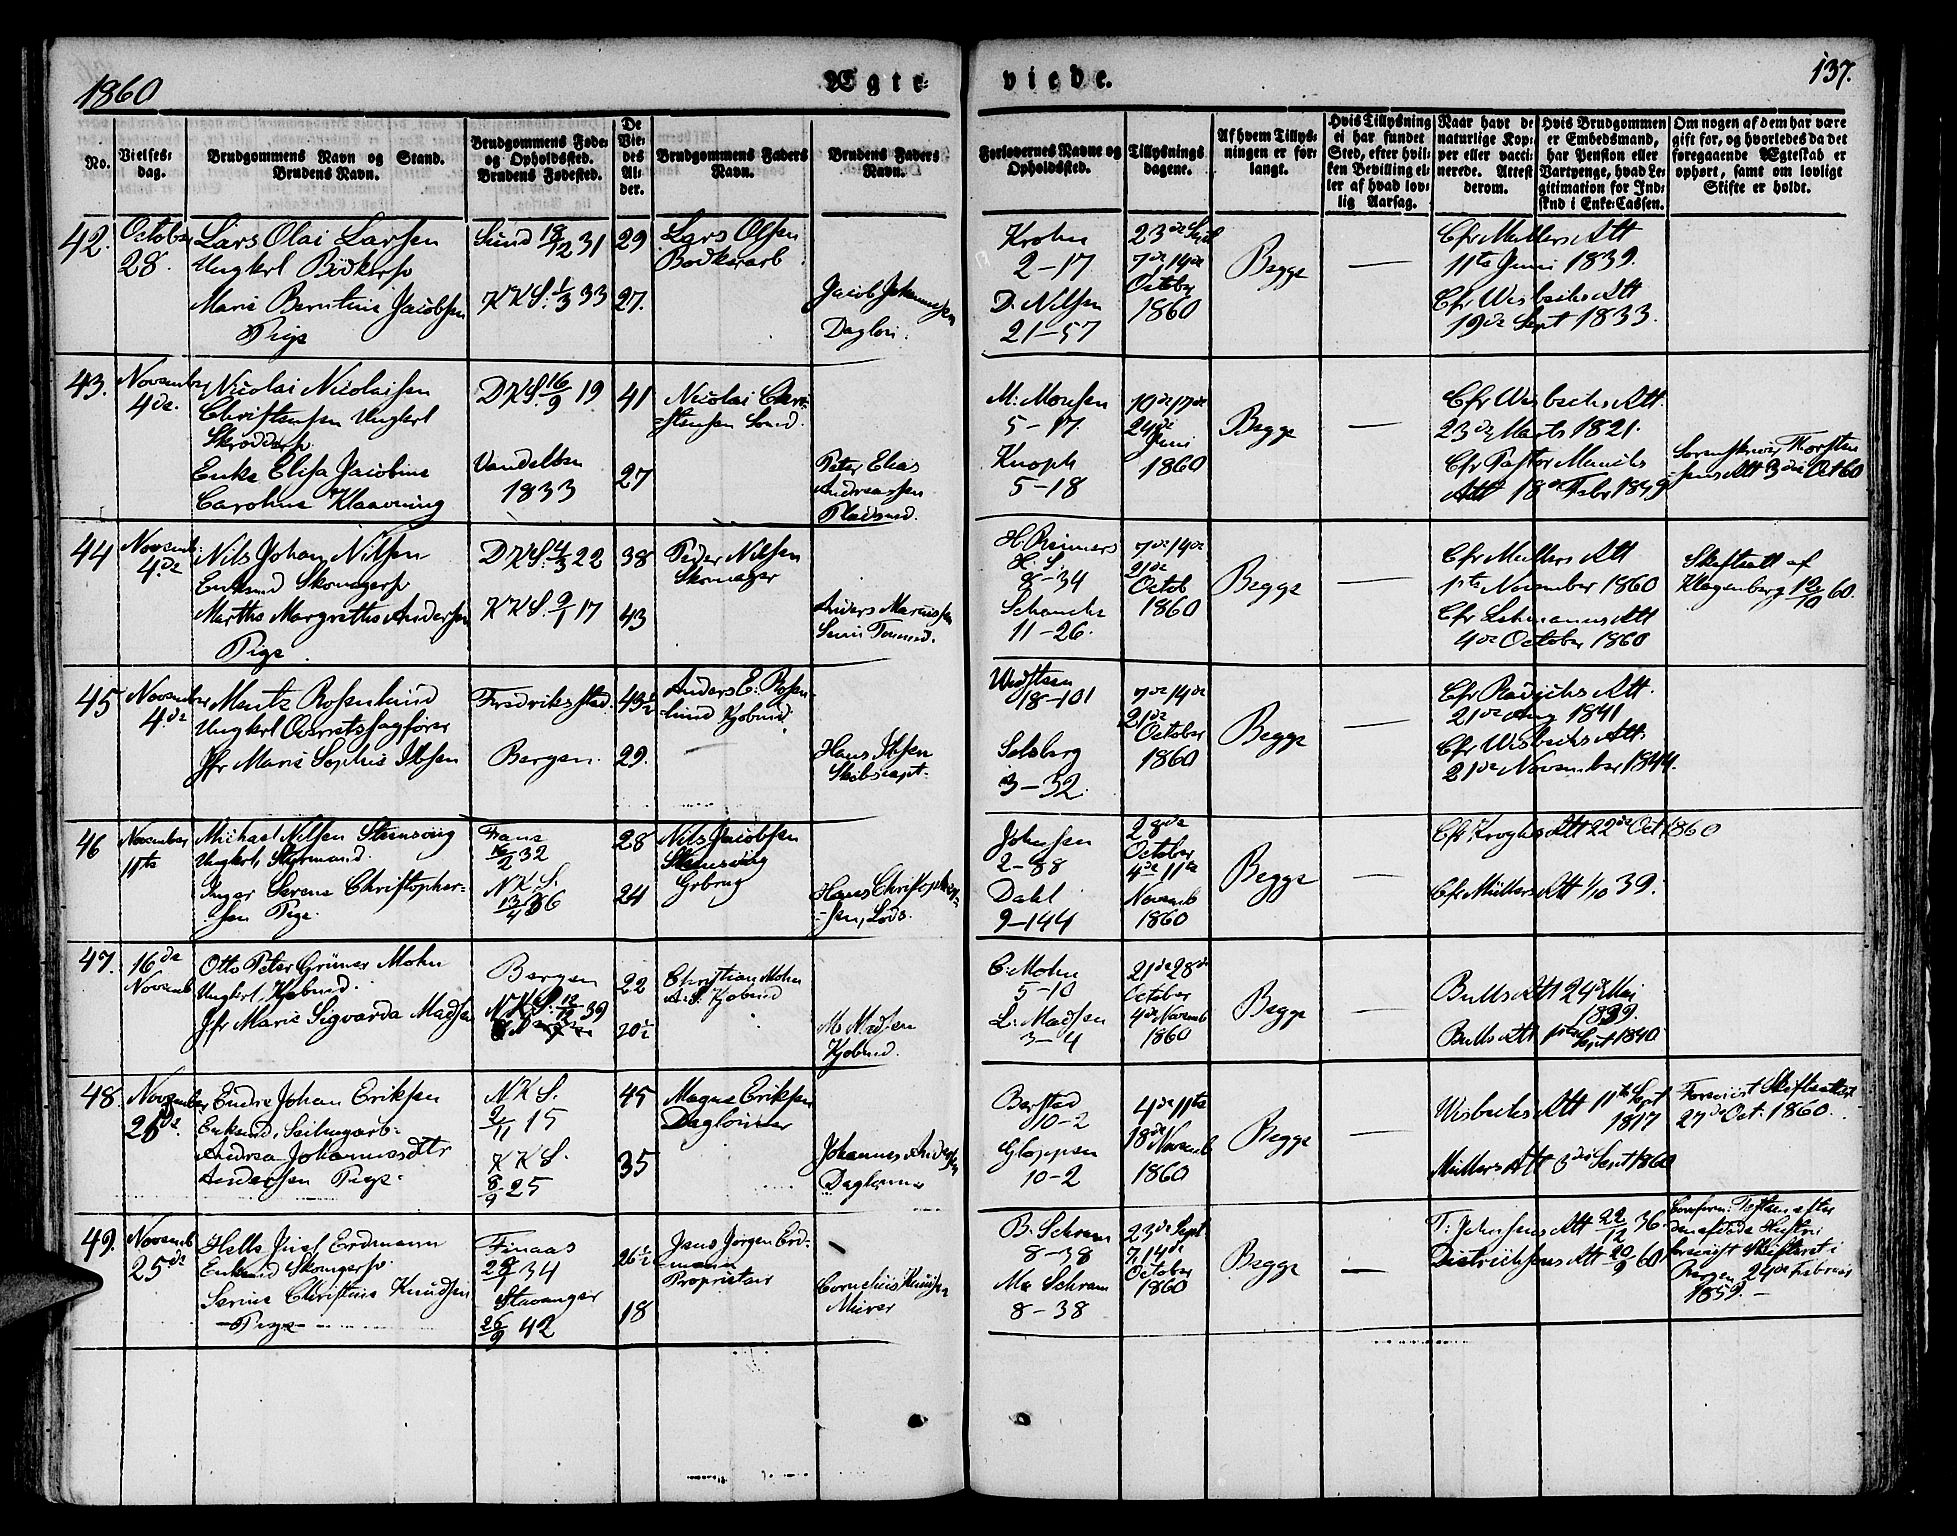 1860
Ægte-
viede.
137.
No.
Vielses-
dag.
Brudgommens Navn og Stand.
Brudens Navn.
Brudgommens Føde-
og Opholdssted.
Brudens Fødested.
De
Vie-
des
Al-
der.
Brudgommens Faders
Navn.
Brudens Faders
Navn.
Forlovernes Navne og
Opholdssted.
Tillysnings
dagene.
Af hvem Tillys-
ningen er for-
langt.
Hvis Tillysning
ei har fundet
Sted, efter hvil-
ken Bevilling el-
ler af hvad lov-
lig Aarsag.
Naar havt de
naturlige Kop-
per eller vacci-
nerede. Attest
derom.
Hvis Brudgommen
er Embedsmand,
har Pension eller
Vartpenge, hvad Le-
gitimation for Ind-
skud i Enke-Cassen.
Om nogen af dem har være
gift før, og hvorledes da det
foregaaende Ægteskab er
ophørt, samt om lovligt
Skifte er holdt.
42.
October
28.
Lars Olai Larsen
Ungkarl
Marie Berntine Jacobsen
Pige
Sund 18/12 31
KKS. 1/3 33
29
27.
Lars Olsen
Bødkerarb
Jacob Johannesen
Krohn
2-17
D. Nilsen
21-57
23de Sept
7de 14de
October
1860
Begge
Cfr Mullers Att
11te Juni 1839.
Cfr Wisbechs Att
19de Sept 1833.
43.
November
4de
Nicolai Nicolaisen
Christensen Ungkarl
Enke Elisa Jacobine
Caroline
DKS. 16/9 19
1833
41
27
Nicolai Chri-
stensen
Peter Elias
Andreassen
M. Monsen
5-17
Knoph
5-18
10de 17de
24de
Juni
1860
Begge
Cfr Wisbechs Att
23de Marts 1821.
Cfr Pastor Att 18de Febr 1849
Att 3de Oct 60
44
Novemb:
4de
Nils Johan Nilsen
Enkemd
Marthe Margrethe Andersen
Pige
DKS. 4/3 22
KKS. 9/1 17
38
43
Peder Nilsen
Skomager
Anders
H. Reimers
8-34
Schancke
11-26.
7de 14de
21de
Octob
1860
Begge
Cfr Mullers Att
1ste November 1860
Cfr Lehmanns Att
4de October 1860
Skifteatt af
Klagenberg 12/10 60.
45
November
4de
Mentz Rosenlund
Ungkarl Overretssagfører
Jfr Marie Sophie Ibsen
Fredriksstad
Bergen.
43½
29.
Anders E. Rosen-
lund Kjøbmd.
Hans Ibsen
Skibscapt.
18-101
Solberg
3-32.
7de 14de
21de
October
1860
Begge
Cfr Att.
21de Aug 1841
Cfr Wisbechs Att.
21de November 1844.
46
November
11te
Michael Nilsen
Ungkarl, Styrmand.
Inger Serene Christopher-
sen Pige.
16/2 32
NKS.
13/4 36
28
24
Nils Jacobsen
Hans Christopher-
sen, Lods.
Johnsen
2-88
Dahl
9-144
28de
October
4de 11te
Novemb
1860
Begge
Cfr Kroghs Att 22de Oct 1860
Cfr Müllers Att 1/10 39.
47.
16de
Novemb
Otto Peter Grüner Mohn
Ungkarl, Kjøbmd.
Jfr Marie Sigvarda Madsen
Bergen
NKS. 12/12 39
22
20½
Christian Mohn
Kjøbmd
M. Madsen
Kjøbmd.
C. Mohn
5-10
L. Madsen
3-4
21de 28de
October
4de Novemb
1860
Begge
Bulls Att 24de Mai
1839.
Bulls Att 1ste
Sept 1840
48.
November
25de
Endre Johan Eriksen
Enkemd,
Andrea Johannesdtr
Andersen Pige.
NKS.
9/11 15
KKS.
8/9 25
45
35
Magne Eriksen
Johannes Andersen
10-2
Gloppen
10-2
4de 11te
18de Novemb
1860
Begge
Wisbechs Att 11te Sept
1817
Müllers Att 3de Sept 1860
Skifteattest
27de Oct. 1860.
49.
Novemb
25de
Helle Juel Erdmann
Enkemd
Serine Christine Knudsen
Pige
Finaas
34
Stavanger
26/9 42
26½
18
Jens Jørgen Erd-
mann
Proprietair
Cornelius Knudsen
Murer
B. Schram
8-38
Schram
8-38
23de Sept
7, 14de
October
1860
Begge
T. Johnsens Att 22/12 36.
Dietrichsens Att 20/9 60
Bergen 24de Februar
1859.